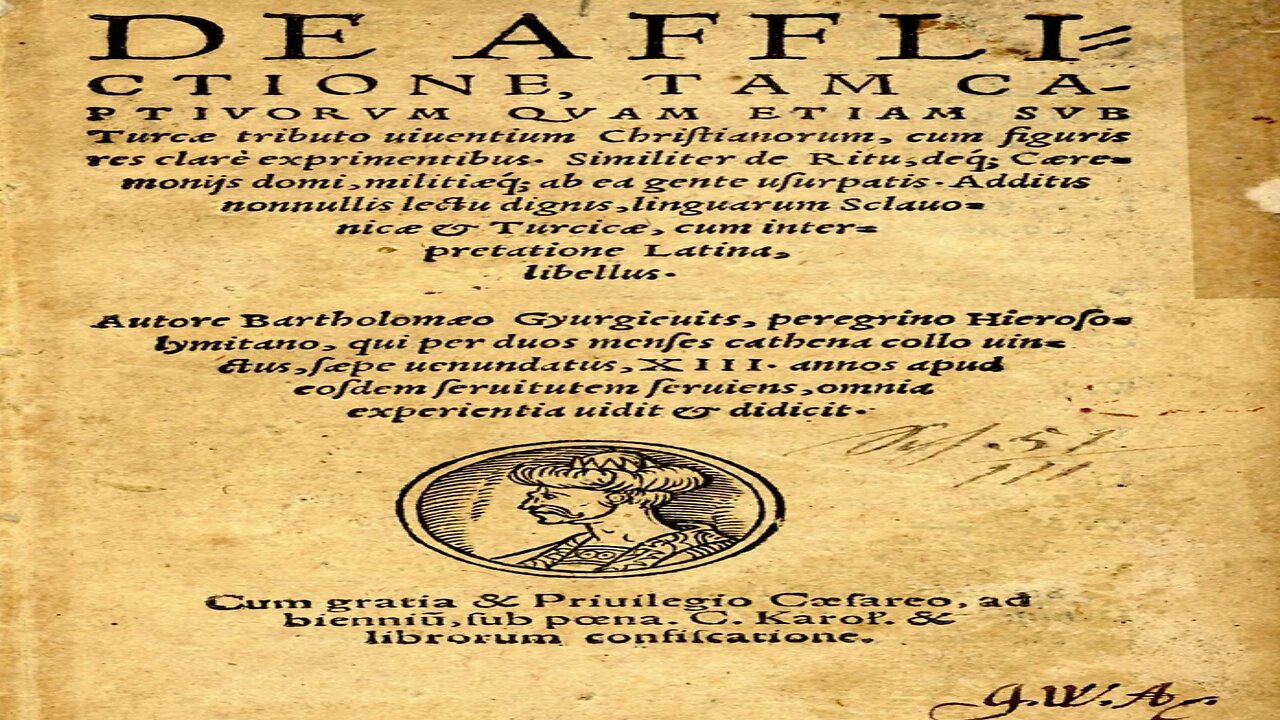 DE AFFLI=
CTIONE, TAM CA-
PTIVORVM QVAM ETIAM SVB
Turcæ tributo uiuentium Chriſtianorum, cum figuris
res clarè exprimentibus. Similiter de Ritu, deq́; Cære=
monijs domi, militiæq́; ab ea gente uſurpatis. Additis
nonnullis lectu dignis, linguarum Sclauo=
nicæ & Turcicæ, cum inter=
pretatione Latina,
libellus.
Autore Bartholomæo Gyurgieuits, peregrino Hieroſo=
lymitano, qui per duos menſes cathena collo uin=
ctus, ſæpe uenundatus, XIII. annos apud
eoſdem ſeruitutem ſeruiens, omnia
experientia uidit & didicit.
51
Cum gratia & Priuilegio Cæſareo, ad
bienniū, ſub pœna. C. Karoł. &
librorum confiſcatione.
G.W.A.